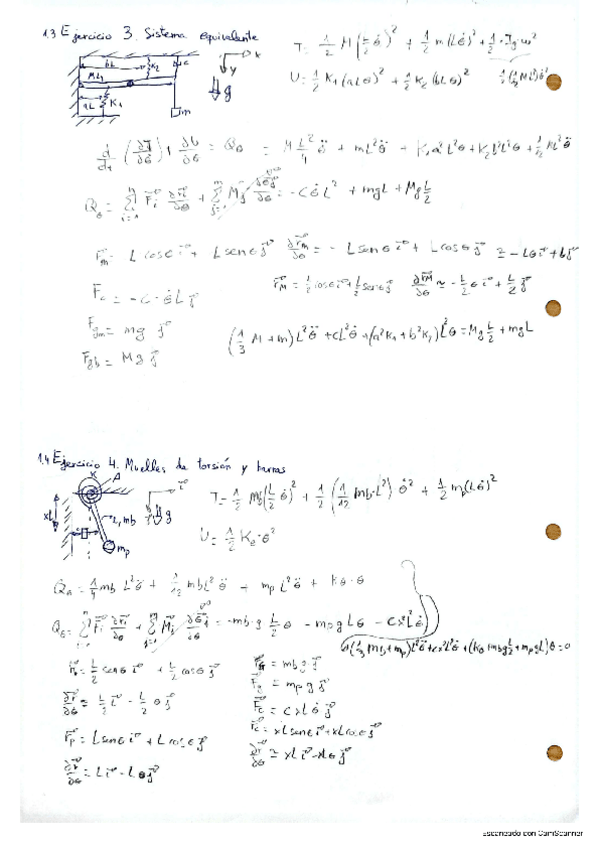 1.3 Ejercicio 3. Sistema equivalente
T = 1/2 M (L/2 θ̇)² + 1/2 m (Lθ̇)² + 1/2 · Ig · ω²
U = 1/2 K₁ (aLθ)² + 1/2 K₂ (bLθ)²
bL K₂ c x
ML,
y
aL K₁ g
m
d/dt (∂T/∂θ̇) + ∂U/∂θ = Qθ = M L²/4 θ̈ + mL² θ̈ + K₁a²L²θ + K₂b²L²θ + 1/12 ML²θ̈
Qθ = Σ F⃗i ∂r⃗i/∂θ + Σ M⃗j ∂θ⃗j/∂θ = -Cθ̇L² + mgL + Mg L/2
r⃗m = L cosθ i⃗ + L senθ j⃗ ∂r⃗m/∂θ = - L senθ i⃗ + L cosθ j⃗ ≃ -Lθ i⃗ + L j⃗
r⃗M = L/2 cosθ i⃗ + L/2 senθ j⃗ ∂r⃗M/∂θ ≃ -L/2 θ i⃗ + L/2 j⃗
Fc = -C · θ̇L j⃗
Fgm = mg j⃗
Fgb = Mg j⃗
(1/3 M + m) L²θ̈ + cL²θ̇ + (a²K₁ + b²K₂) L²θ = Mg L/2 + mgL
1.4 Ejercicio 4. Muelles de torsión y barras
K A i⃗
xL L, mb g
c
mp
T = 1/2 Mb (L/2 θ̇)² + 1/2 (1/12 mb·L²) θ̇² + 1/2 mp (Lθ̇)²
U = 1/2 Kθ · θ²
Qθ = 1/4 mb L²θ̈ + 1/12 mbL²θ̈ + mp L²θ̈ + Kθ · θ
Qθ = Σ F⃗i ∂r⃗i/∂θ + Σ M⃗j ∂θ⃗j/∂θ = -mb·g L/2 θ - mpgLθ - Cx²L²θ̇
(1/3 mb + mp) L²θ̈ + cx²L²θ̇ + (Kθ + mbg L/2 + mpgL) θ = 0
r⃗b = L/2 senθ i⃗ + L/2 cosθ j⃗
F⃗b = mb g j⃗
∂r⃗/∂θ ≃ L/2 i⃗ - L/2 θ j⃗
F⃗p = mp g j⃗
F⃗c = cxLθ̇ i⃗
r⃗p = L senθ i⃗ + L cosθ j⃗
r⃗c = xL senθ i⃗ + xL cosθ j⃗
∂r⃗/∂θ = L i⃗ - Lθ j⃗
∂r⃗/∂θ ≃ xL i⃗ - xLθ j⃗
Escaneado con CamScanner